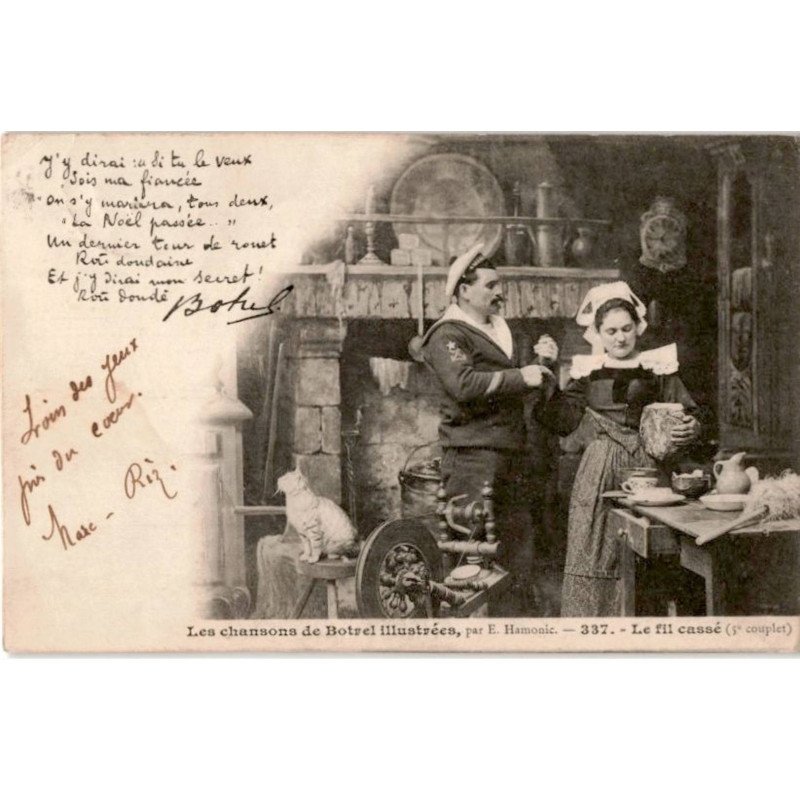 J'y dirai : « Si tu le veux
Sois ma fiancée
On s'y mariera, tous deux,
"La Noël passée.. "
Un dernier tour de rouet
Roû doudaine
Et j'y dirai mon secret !
Roû doudé
Botrel
Loin des yeux
près du coeur.
Marc - Riz.
Les chansons de Botrel illustrées, par E. Hamonic. — 337. - Le fil cassé (5e couplet)